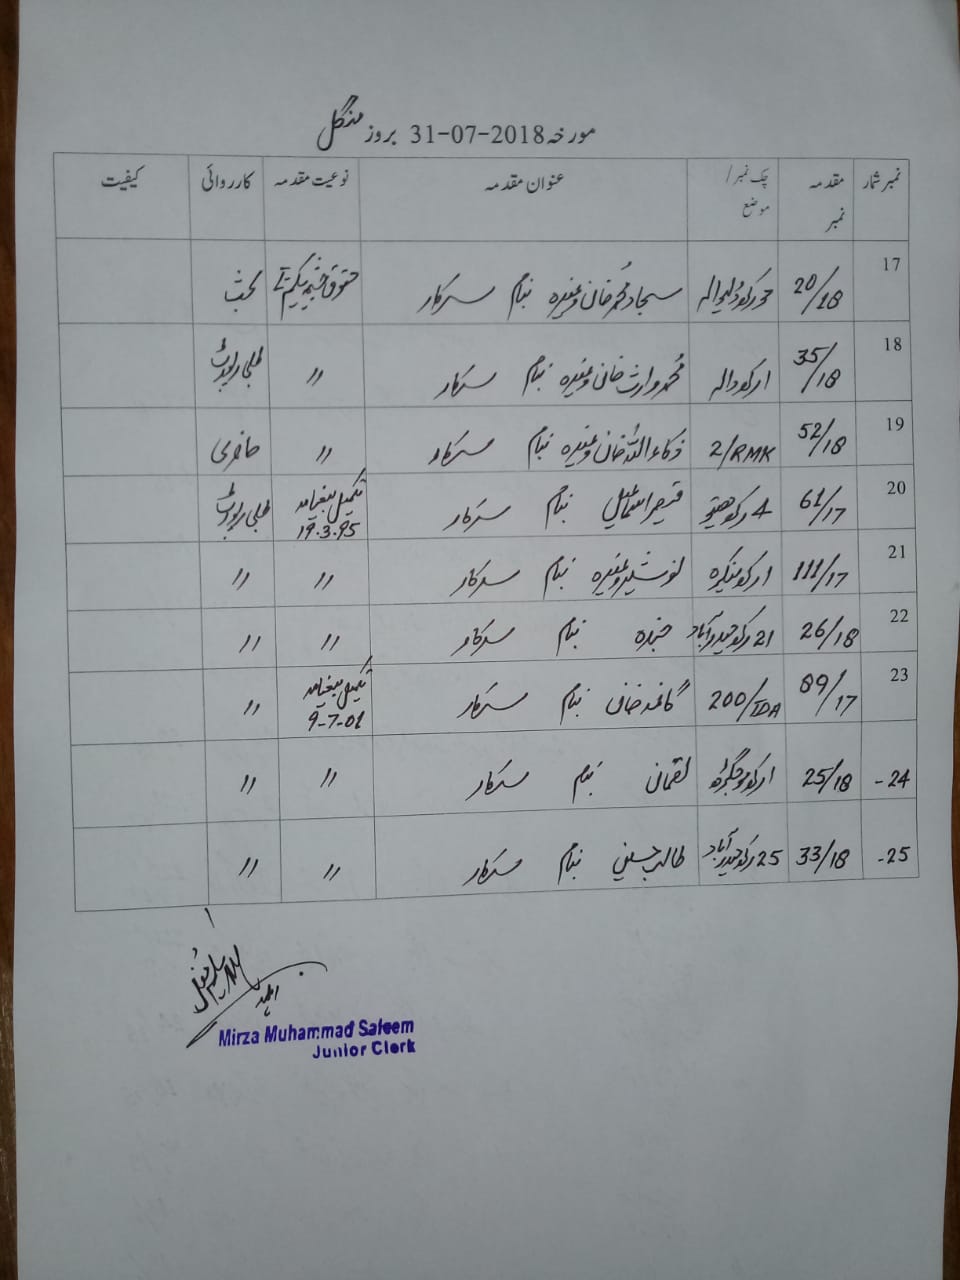 مورخہ 31-07-2018 بروز منگل
نمبر شمار مقدمہ نمبر چک نمبر/موضع عنوان مقدمہ نوعیت مقدمہ کارروائی کیفیت
17 20/18 سجاد محمد خان وغیرہ بنام سرکار بحث
18 35/18 محمد وارث خان وغیرہ بنام سرکار 〃 طلبی رپورٹ
19 52/18 2/RMK ذکاء اللہ خان وغیرہ بنام سرکار 〃 حاضری
20 61/17 4 قیصر اسماعیل بنام سرکار تکمیل بیعنامہ 19.3.95 طلبی رپورٹ
21 111/17 وغیرہ بنام سرکار 〃 〃
22 26/18 21 رکھ حیدرآباد بنام سرکار 〃 〃
23 89/17 200/TDA بنام سرکار تکمیل بیعنامہ 9-7-01 〃
24- 25/18 لقمان بنام سرکار 〃 〃
25- 33/18 25 رکھ حیدرآباد طالب حسین بنام سرکار 〃 〃
Mirza Muhammad Saleem
Junior Clerk